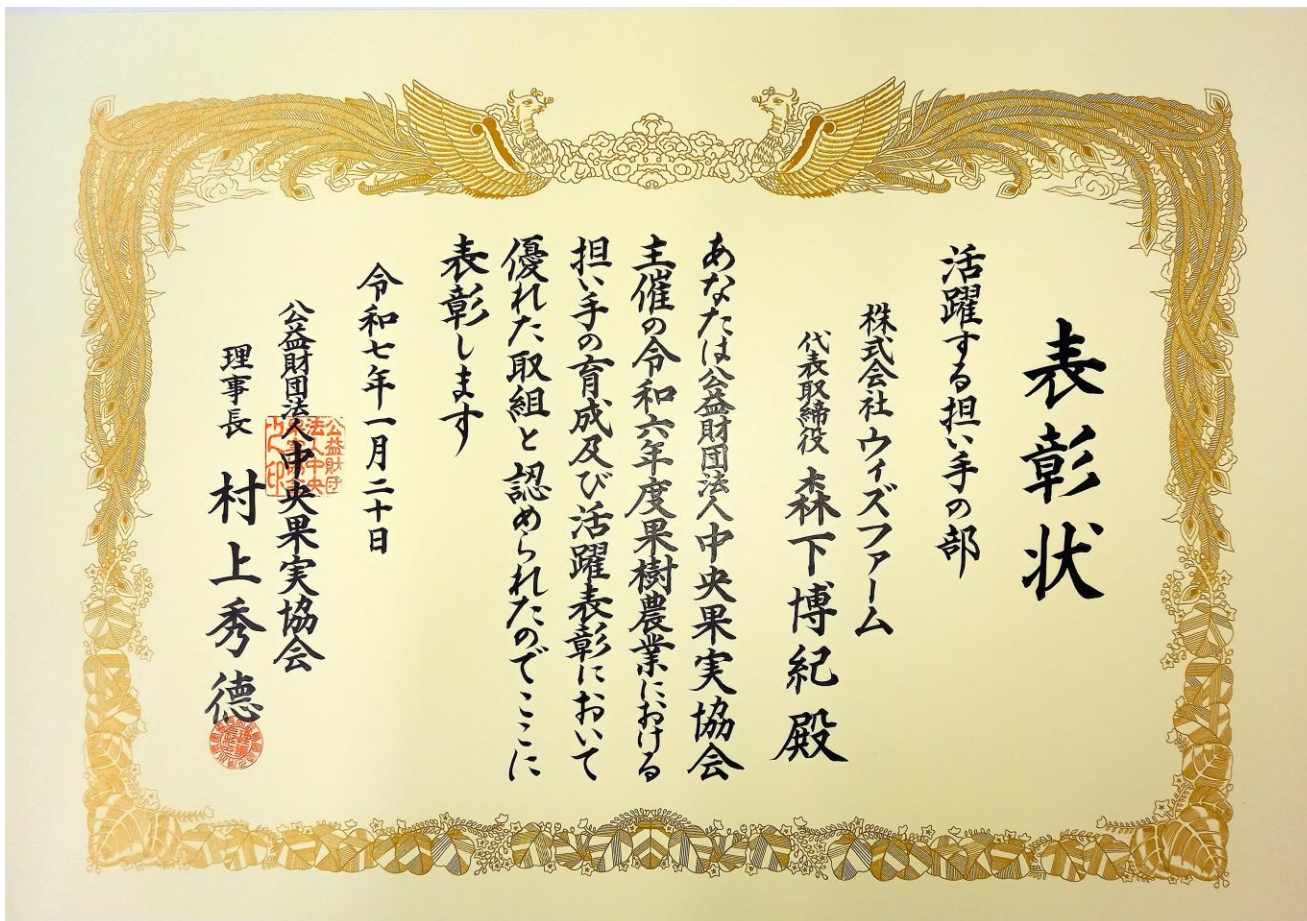 表彰状
活躍する担い手の部
株式会社ウィズファーム
代表取締役 森下博紀殿
あなたは公益財団法人中央果実協会
主催の令和六年度果樹農業における
担い手の育成及び活躍表彰において
優れた取組と認められたのでここに
表彰します
令和七年一月二十日
公益財団法人中央果実協会
理事長 村上秀德